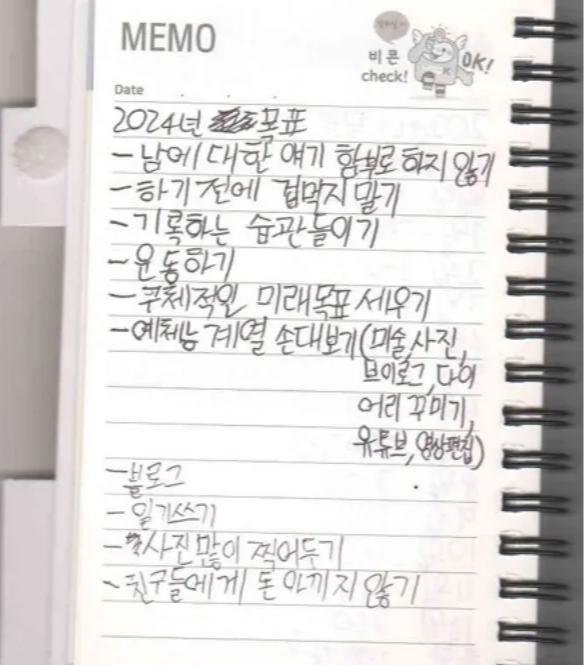 MEMO
비콘
check!
OK!
Date
2024년 포표
-남에 대한 얘기 함부로 하지 않기
-하기 전에 겁먹지 말기
-기록하는 습관들이기
-운동하기
-구체적인 미래목표 세우기
-예체능 계열 손대보기(미술,사진,
브이로그,다이
어리 꾸미기,
유튜브,영상편집)
-블로그
-일기쓰기
-사진 많이 찍어두기
-친구들에게 돈 아끼지 않기